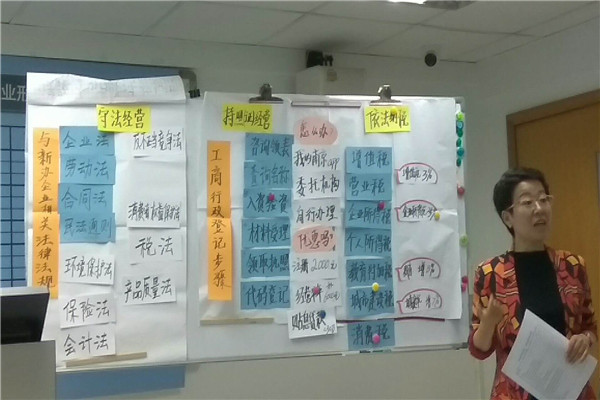 守法经营
与新办企业相关法律法规
企业法
劳动法
合同法
民法通则
环境保护法
保险法
会计法
反不正当竞争法
消费者权益保护法
税法
产品质量法
持照经营
工商行政登记事务
咨询领表
入资验资
材料受理
领取执照
代码登记
怎么办
我的南京app
委托机构
自行办理
优惠吗?
注册2,000元
依法纳税
增值税
营业税
企业所得税
个人所得税
教育附加税
城市建设税
消费税